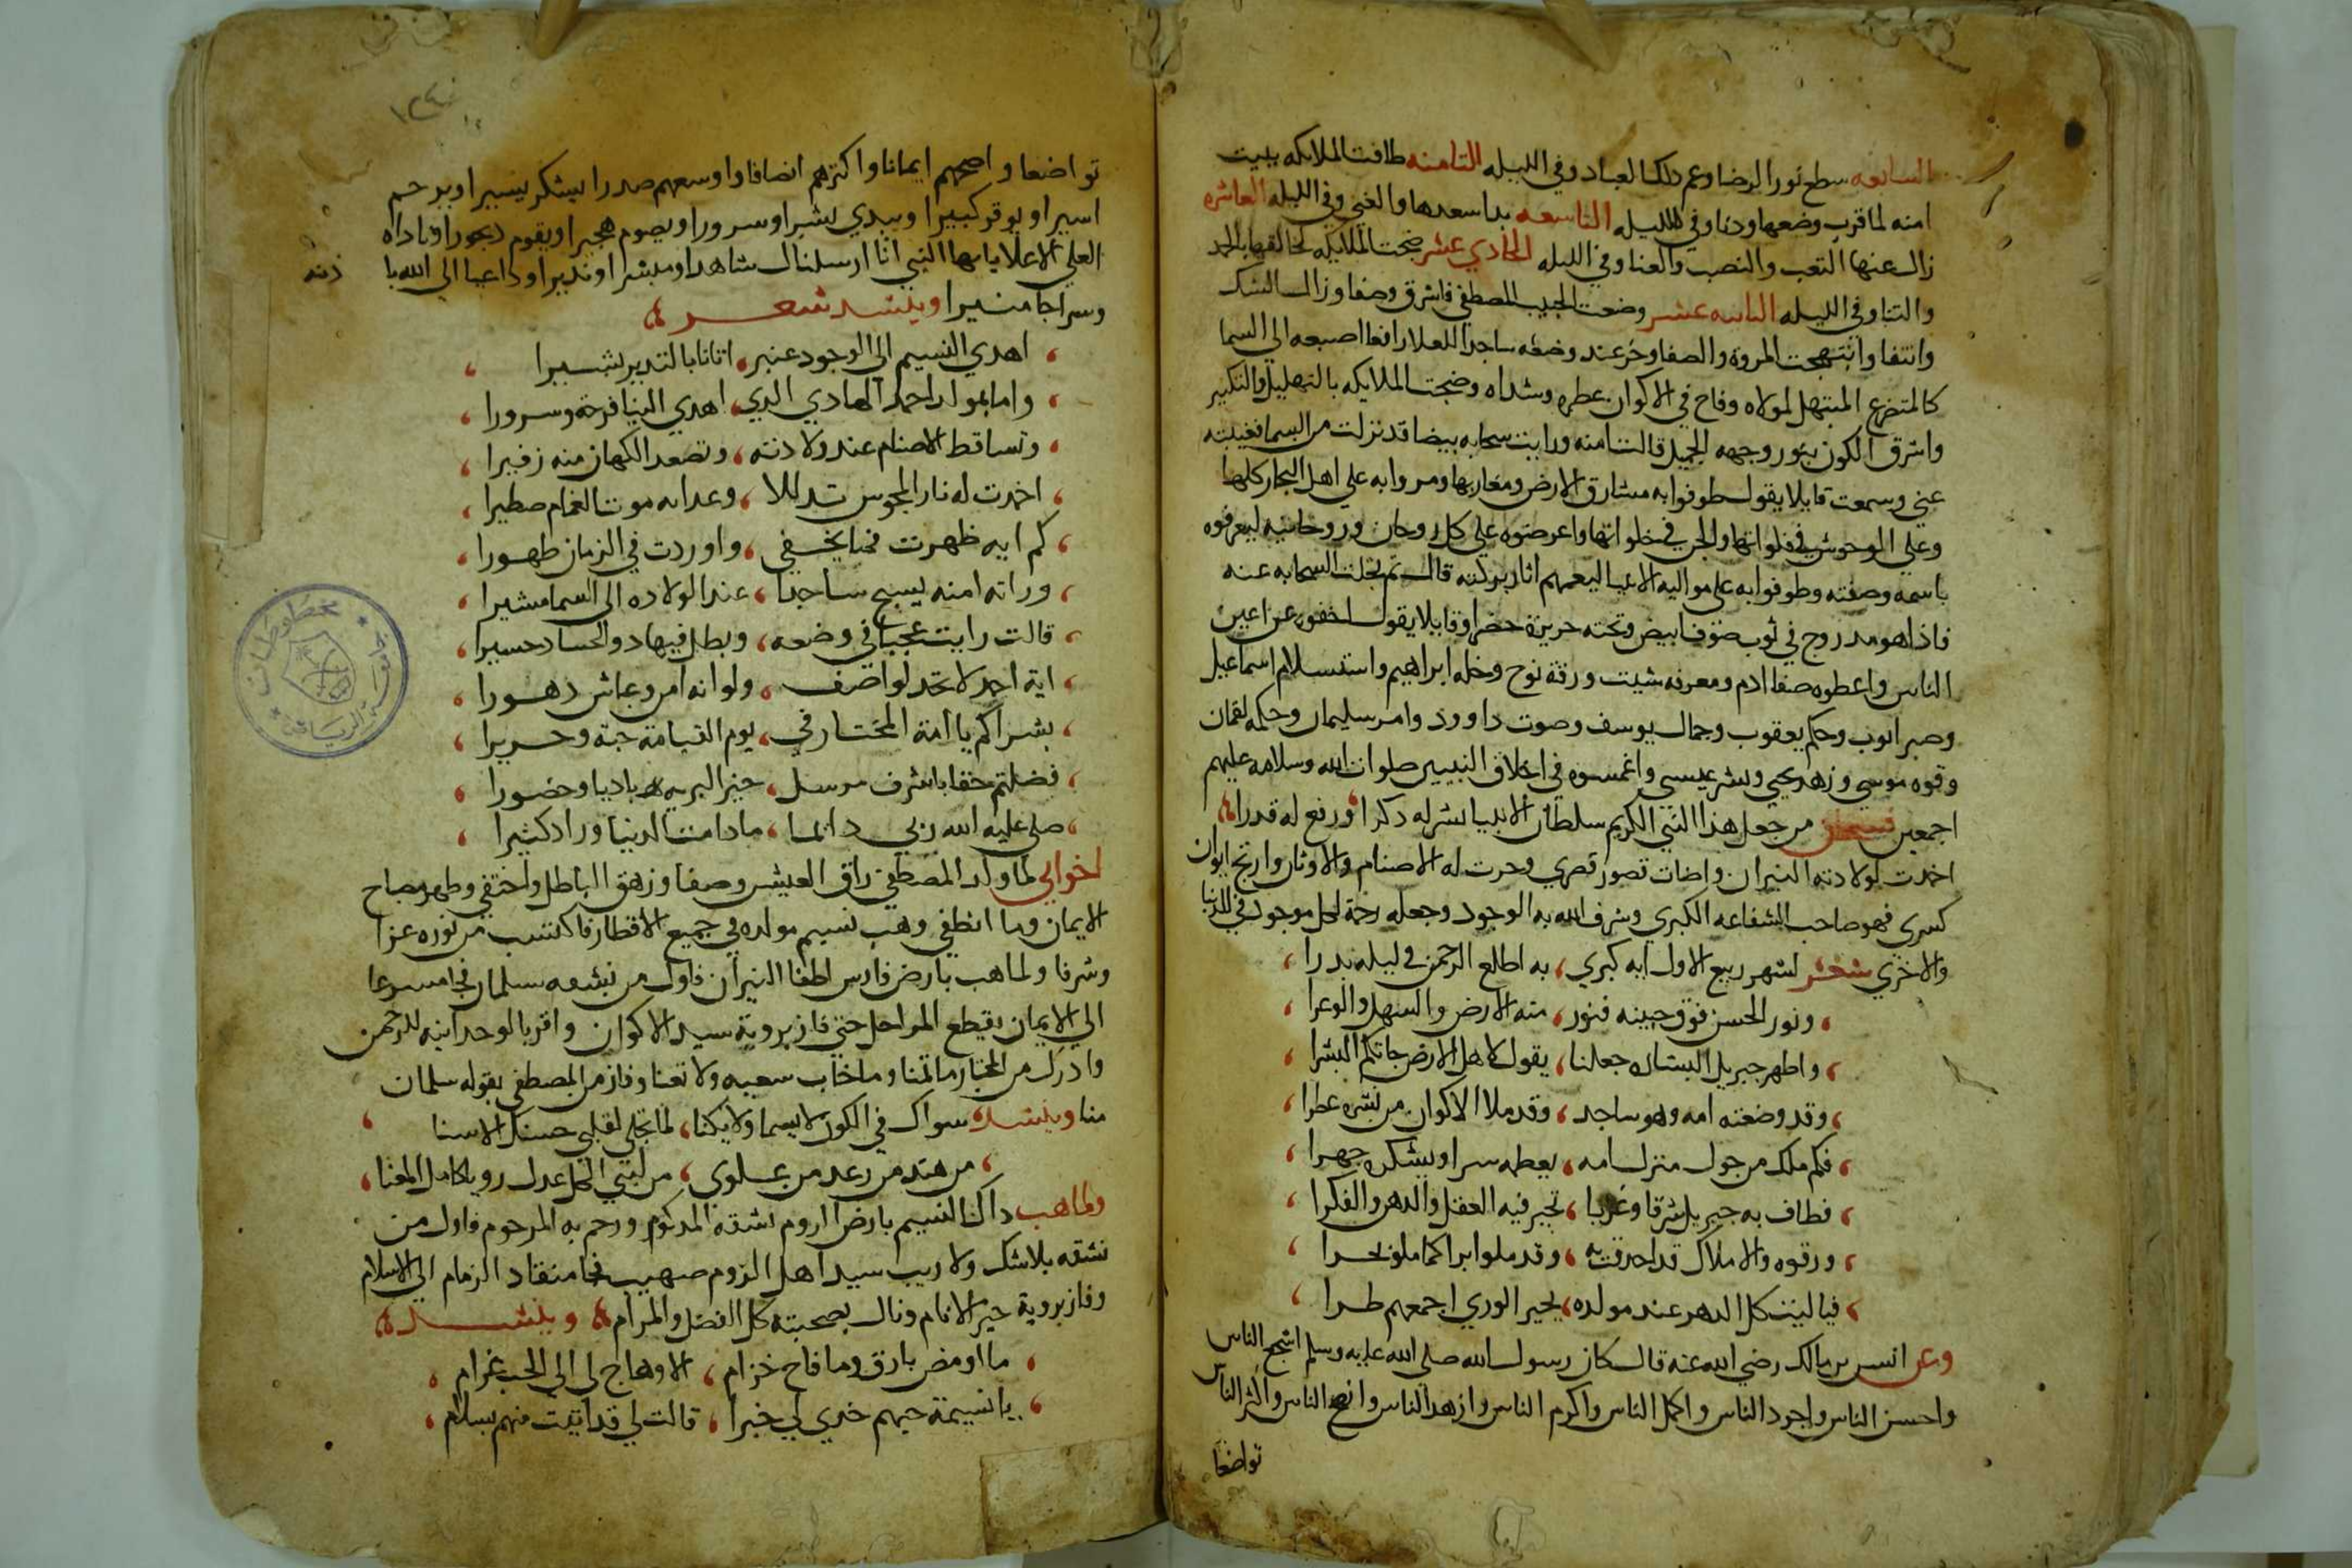 السابعه سطح نور الرضا وعم ذلك العباد وفي الليله الثامنه طافت الملايكه ببيت
امنه لما قرب وضعها ودنا وفي الليله التاسعه بدا سعدها والغني وفي الليله العاشره
زال عنها التعب والنصب والعنا وفي الليله الحادي عشر ضجت الملايكه لخالقها بالحمد
والثنا وفي الليله الثانيه عشر وضعت الحبيب المصطفي فاشرق وصفا وزال الشك
وانتفا وابتهجت المروة والصفا وخر عند وضعه ساجدا للعلا رافعا اصبعه الي السما
كالمتضرع المبتهل لمولاه وفاح في الاكوان عطره وشداه وضجت الملايكه بالتهليل والتكبير
واشرق الكون بنور وجهه الجميل قالت امنه ورايت سحابه بيضا قد نزلت من السما فغيبته
عني وسمعت قايلا يقول طوفوا به مشارق الارض ومغاربها ومروا به علي اهل البحار كلها
وعلي الوحوش في فلواتها والجن في خلواتها واعرضوه علي كل روحان وروحانيه ليعرفوه
باسمه وصفته وطوفوا به علي مواليد الانبيا ليعمهم اثار بركته قال ثم تجلت السحابه عنه
فاذا هو مدروج في ثوب صوف ابيض وتحته حريرة خضرا وقايلا يقول اخفوه عن اعين
الناس واعطوه صفا ادم ومعرفه شيت ورقة نوح وخله ابراهيم واستسلام اسماعيل
وصبر ايوب وحكم يعقوب وجمال يوسف وصوت داوود وامر سليمان وحكمه لقمان
وقوه موسي وزهد يحيي وبشر عيسي واغمسوه في اخلاق النبيين صلوات الله وسلامه عليهم
اجمعين فسبحان من جعل هذا النبي الكريم سلطان الانبيا نشر له ذكرا ورفع له قدرا
اخمدت لولادته النيران واضات قصور قصري وخرت له الاصنام والاوثان وارتج ايوان
كسري فهو صاحب الشفاعه الكبري وشرف الله به الوجود وجعله رحمة لكل موجود في الدنيا
والاخري شعر لشهر ربيع الاول ايه كبري، به اطلع الرحمن في ليله بدرا
ونور الحسن فوق جبينه فنور، منه الارض والسهل والوعرا
واظهر جبريل البشاره جعلنا، يقول لاهل الارض جاتكم البشرا
وقد وضعته امه وهو ساجد، وقد ملا الاكوان من نشره عطرا
فكم ملك من حول منزل امه، يعظمه سرا ويشكره جهرا
فطاف به جبريل شرقا وغربا، تحير فيه العقل والذهن والفكرا
ورقوه والاملاك قد احدقت به، وقد ملوا
فياليت كل الدهر عند مولده، لخير الوري اجمعهم طرا
وعن انس بن مالك رضي الله عنه قال كان رسول الله صلي الله عليه وسلم اشجع الناس
واحسن الناس واجود الناس واكمل الناس واكرم الناس وازهد الناس وانصح الناس واكثر الناس
تواضعا
١٢٤
تواضعا واصحهم ايمانا واكثرهم انصافا واوسعهم صدرا يشكر يسيرا ويرحم
اسيرا ويوقر كبيرا ويبدي بشرا وسرورا ويصوم هجيرا ويقوم ديجورا وناداه
العلي الاعلا يا ايها النبي انا ارسلناك شاهدا ومبشرا ونذيرا وداعيا الي الله با
ذنه
وسراجا منيرا وينشد شعر
اهدي النسيم الي الوجود عنبر، اتانا بالتدبر بشيرا
واما بمولد احمد الهادي الذي، اهدي الينا فرحة وسرورا
وتساقط الاصنام عند ولادته، وتصعد الكهان منه زفيرا
اخمدت له نار المجوس تدللا، وعداته موت الغمام مطيرا
كم ايه ظهرت فما يخفي، واوردت في الزمان طهورا
وراته امنه يسبح ساجدا، عند الولاده الي السما مشيرا
قالت رايت عجبا في وضعه، ويظل فيها ذوالحساد حسيرا
اية احمد لا تحد لواصف، ولو انه امرو عاش دهورا
بشراكم يا امة المختار في، يوم القيامة جنة وحريرا
فضلتم حقا باشرف مرسل، خير البريه باديا وحضورا
صلي عليه الله ربي دايما، مادامت الدنيا وزاد كثيرا
اخواني لما ولد المصطفي راق العيش وصفا وزهق الباطل واختفي وظهر مصباح
الايمان وما انطفي وهب نسيم مولده في جميع الاقطار فاكتسب من نوره عزا
وشرفا ولما هب بارض فارس اطفا النيران فاول من نشقه سلمان فجا مسرعا
الي الايمان يقطع المراحل حتي فاز بروية سيد الاكوان واقر بالوحدانيه للرحمن
وادرك من المختار ما تمنا وما خاب سعيه ولا تعنا وفاز من المصطفي بقوله سلمان
منا وينشد سواك في الكون لا يسما ولا يكنا، لما تجلي لقلبي حسنك الاسنا
من هند من رعد من علوي، من لبني الكل عدل رويا كامل المعنا
ولما هب ذاك النسيم بارض الروم نشقه المزكوم ورحم به المرحوم فاول من
نشقه بلاشك ولا ريب سيد اهل الروم صهيب فجا منقاد الزمام الي الاسلام
وفاز بروية خير الانام ونال بصحبته كل الفضل والمرام وينشد
ما اومض بارق وما فاح خزام، الا وهاج لي الي الحب غرام
يا نسيمة حيهم خذي لي خبرا، قالت لي قد اتيت منهم بسلام
مخطوطات
جامعة الرياض